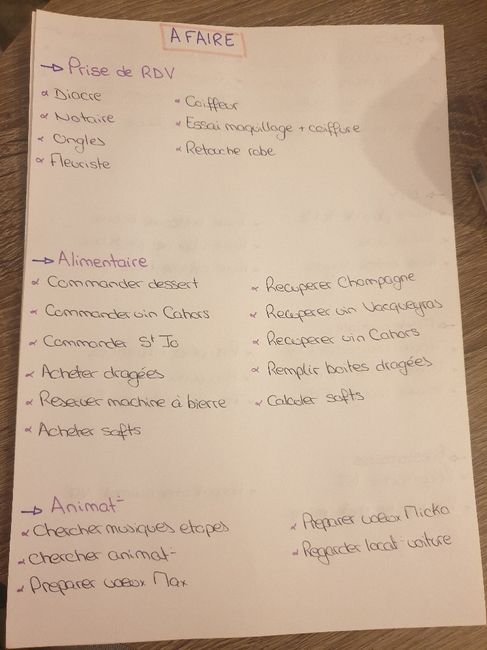 A FAIRE
→ Prise de RDV
Diacre
Notaire
Ongles
Fleuriste
Coiffeur
Essai maquillage + coiffure
Retouche robe
→ Alimentaire
Commander dessert
Commander vin Cahors
Commander St Jo
Acheter dragées
Reserver machine à bierre
Acheter softs
Recuperer Champagne
Recuperer vin Vacqueyras
Recuperer vin Cahors
Remplir boites dragées
Calculer softs
→ Animat°
Chercher musiques etapes
Chercher animat°
Preparer voeux Max
Preparer voeux Micka
Regarder locat° voiture